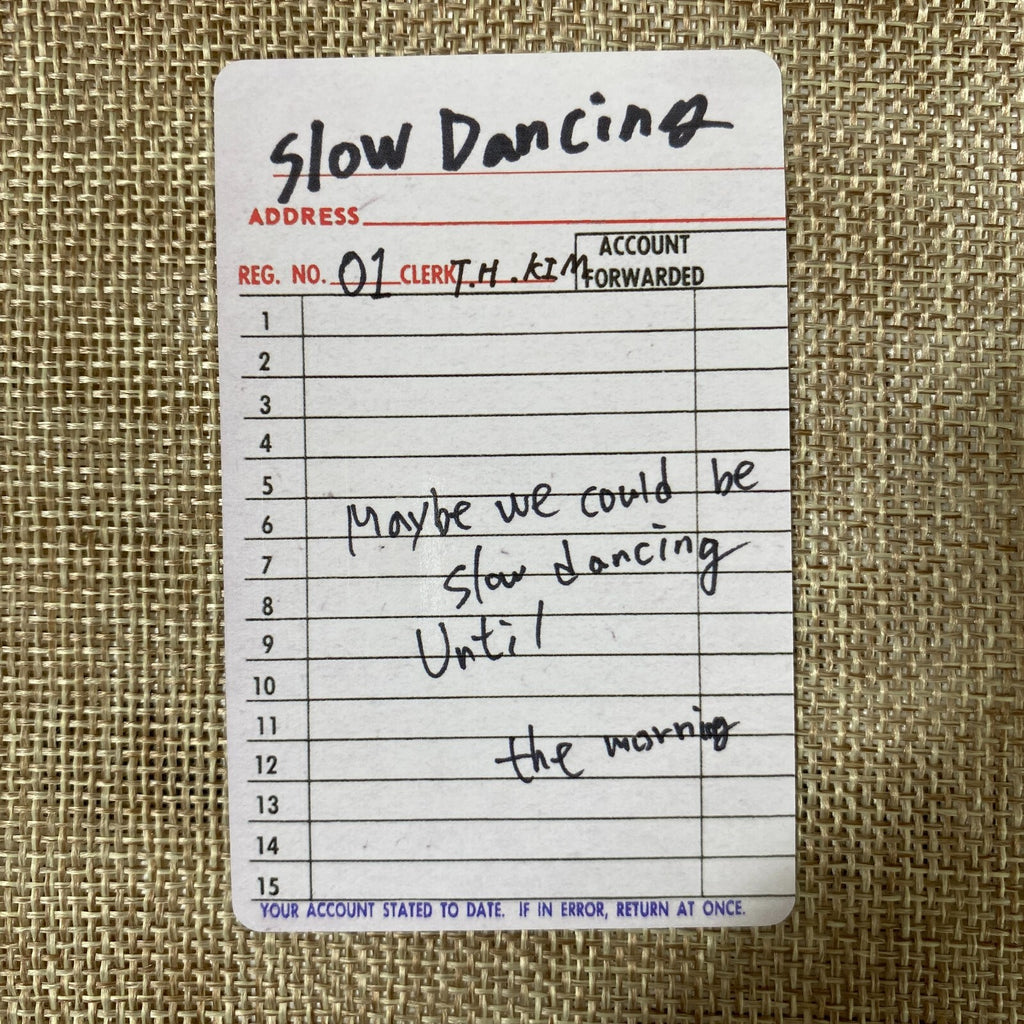 Slow Dancing
ADDRESS
REG. NO. 01 CLERK T.H.KIM ACCOUNT FORWARDED
1
2
3
4
5
Maybe we could be
6
slow dancing
7
8
Until
9
10
11
the morning
12
13
14
15
YOUR ACCOUNT STATED TO DATE. IF IN ERROR, RETURN AT ONCE.